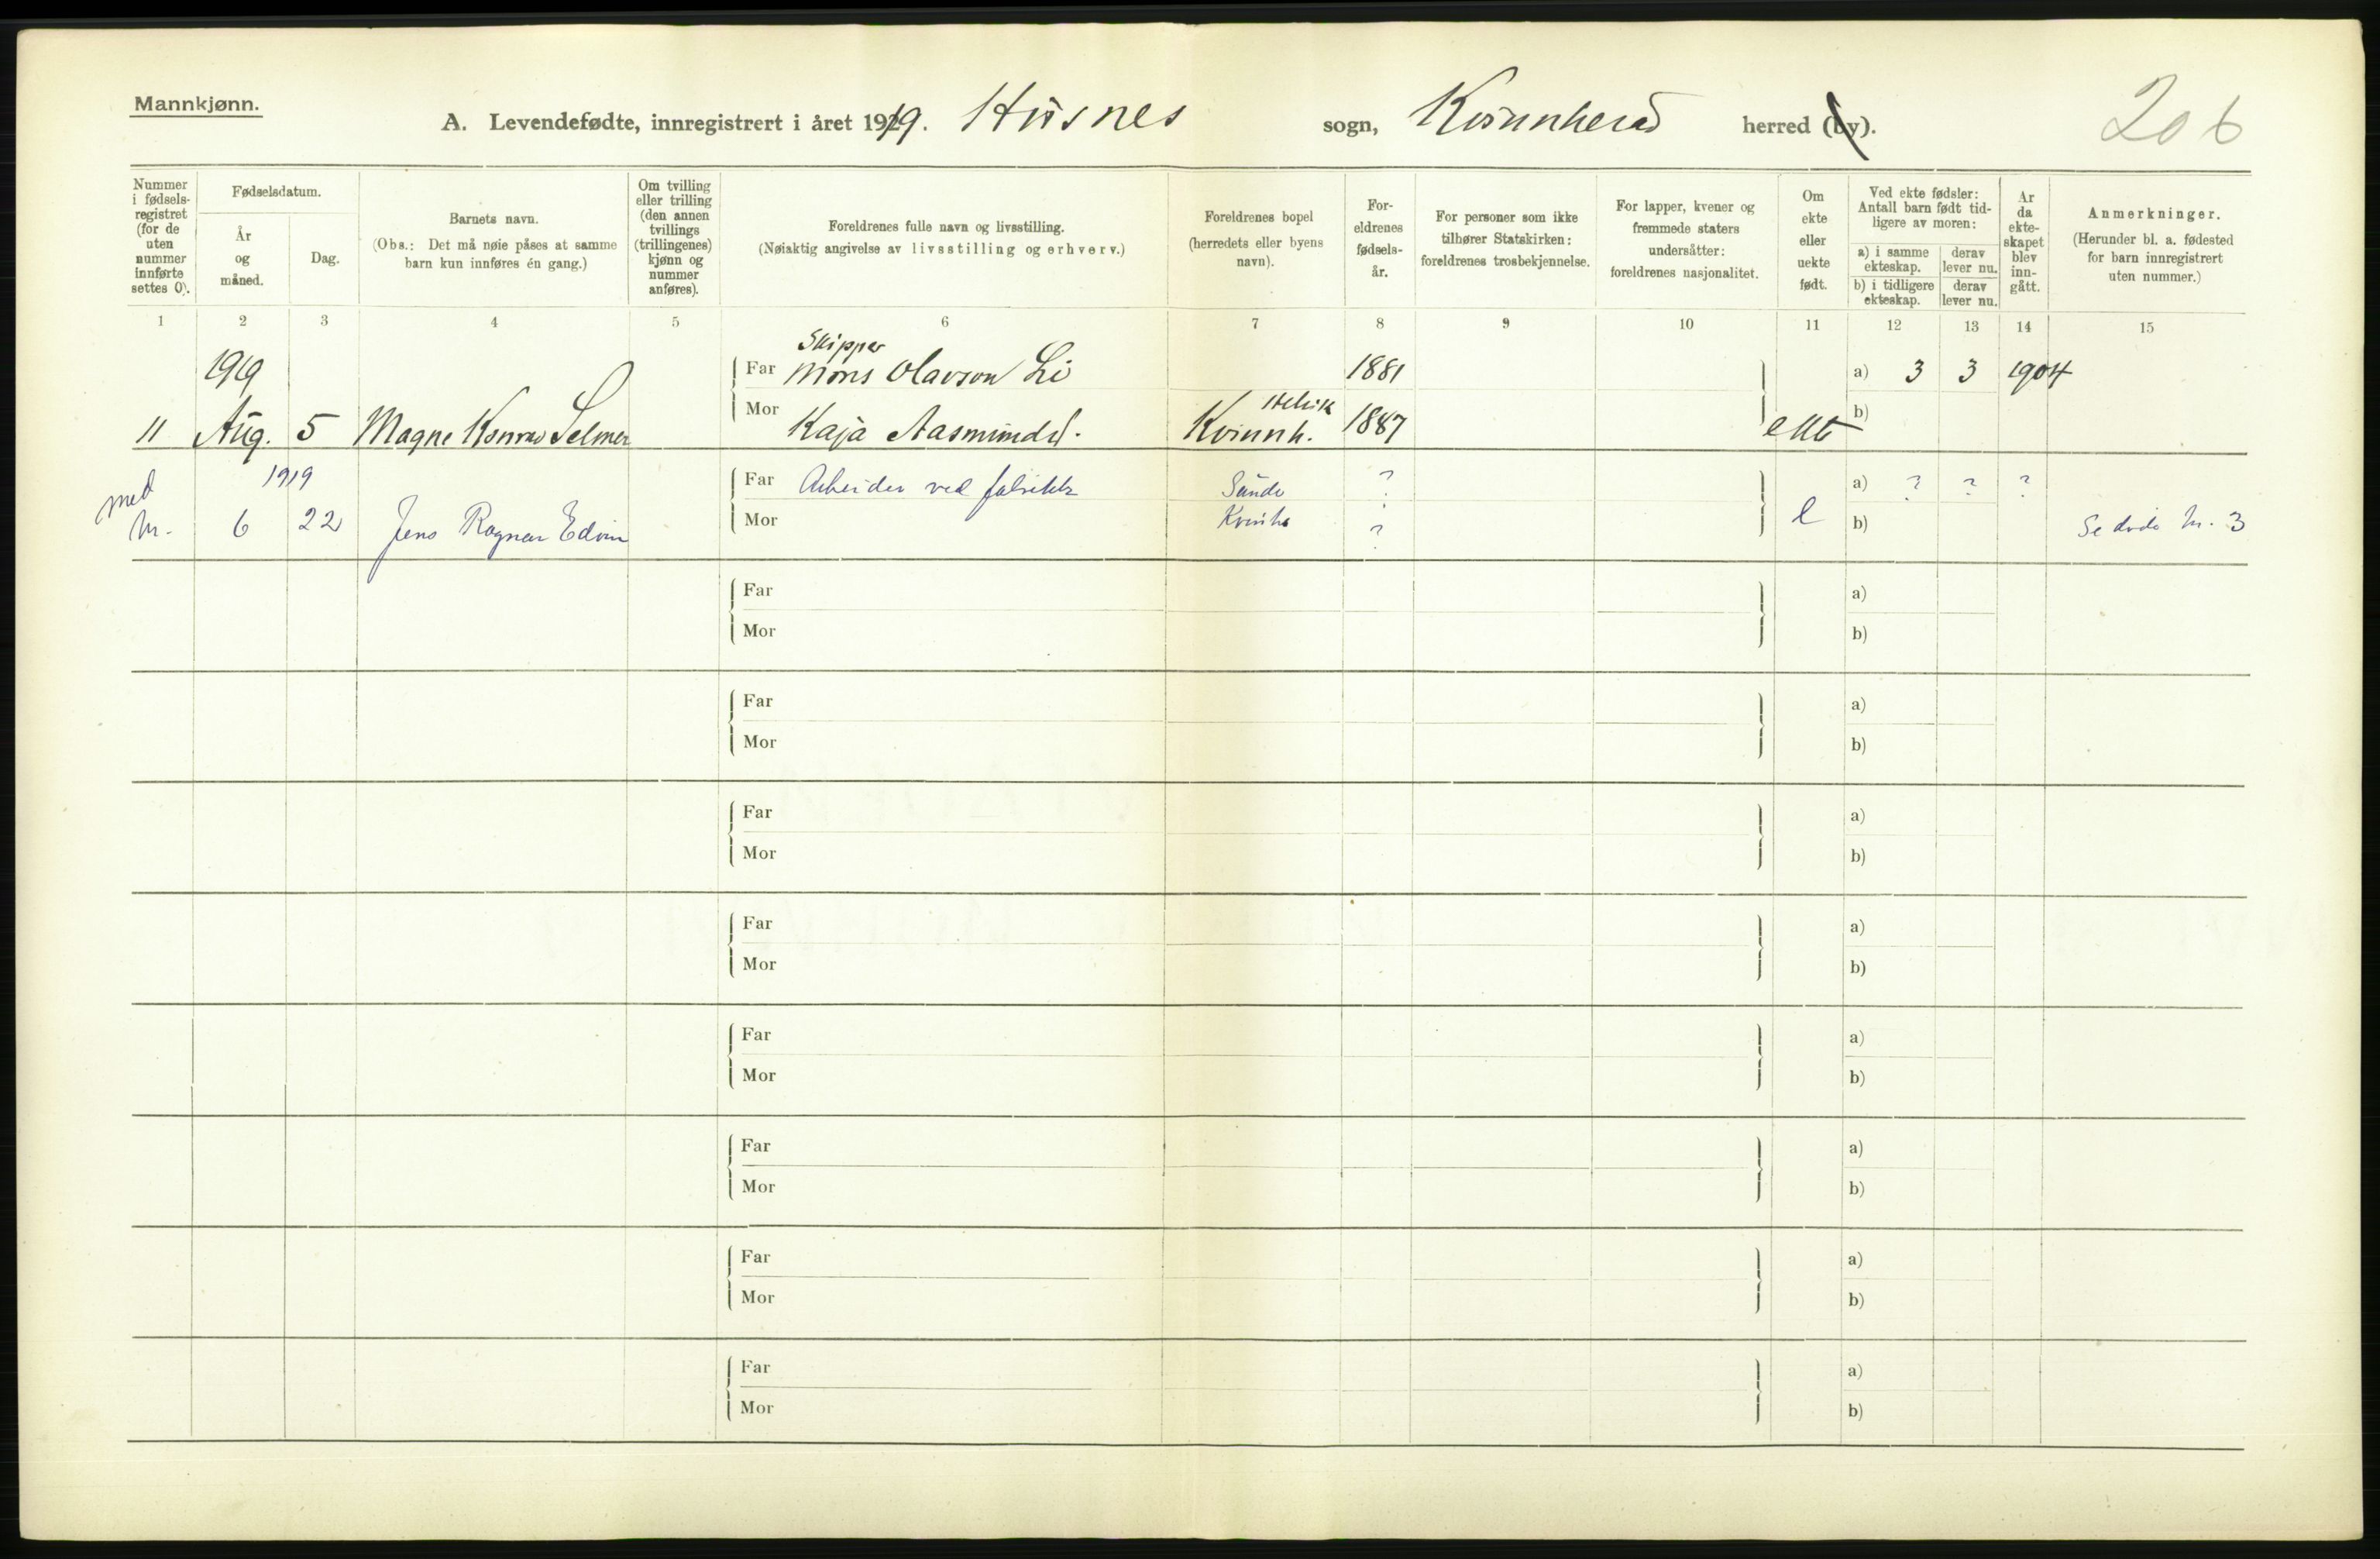 Mannkjønn.
A. Levendefødte, innregistrert i året 1919. Husnes sogn, Kvinnherad herred (by).
206
Nummer i fødsels-registret (for de uten nummer innførte settes 0).
Fødselsdatum.
År og måned.
Dag.
Barnets navn.
(Obs.: Det må nøie påses at samme barn kun innføres én gang.)
Om tvilling eller trilling (den annen tvillings (trillingenes) kjønn og nummer anføres).
Foreldrenes fulle navn og livsstilling.
(Nøiaktig angivelse av livsstilling og erhverv.)
Foreldrenes bopel (herredets eller byens navn).
For-eldrenes fødsels-år.
For personer som ikke tilhører Statskirken: foreldrenes trosbekjennelse.
For lapper, kvener og fremmede staters undersåtter: foreldrenes nasjonalitet.
Om ekte eller uekte født.
Ved ekte fødsler: Antall barn født tid-ligere av moren:
a) i samme ekteskap.
derav lever nu.
b) i tidligere ekteskap.
derav lever nu.
År da ekte-skapet blev inn-gått.
Anmerkninger.
(Herunder bl. a. fødested for barn innregistrert uten nummer.)
1 2 3 4 5 6 7 8 9 10 11 12 13 14 15
Skipper
1919 Far Mons Olavson Li 1881 a) 3 3 1904
11 Aug. 5 Magne Konrad Selmer Mor Kaja Aasmundsd. Kvinnh. 1887 ekte b)
med 1919 Far Arbeider ved fabrikk Sunde ? a) ? ? ?
Nr. 6 22 Jens Ragnar Edvin Mor Kvinnh. ? e b) Se døde Nr. 3
Far a)
Mor b)
Far a)
Mor b)
Far a)
Mor b)
Far a)
Mor b)
Far a)
Mor b)
Far a)
Mor b)
Far a)
Mor b)
Far a)
Mor b)